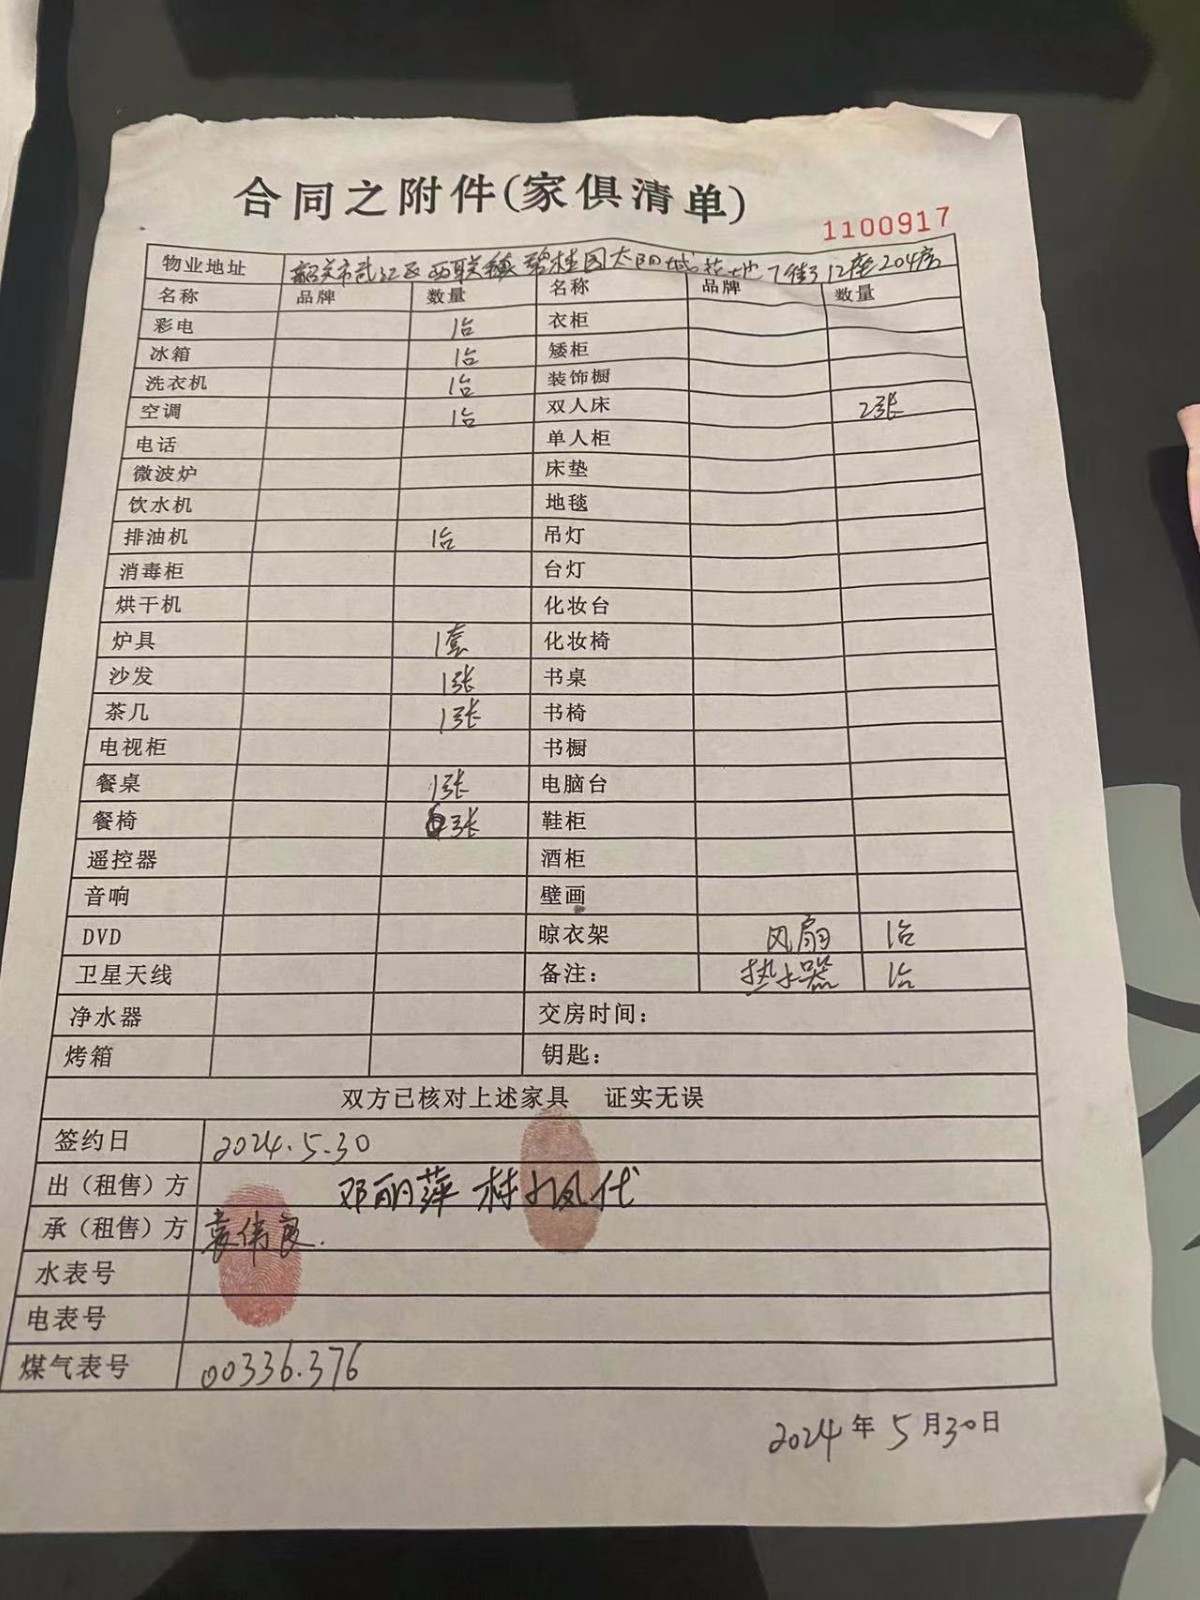 合同之附件(家俱清单)
1100917
物业地址 韶关市武江区西联镇碧桂园太阳城花地7街12座204房
名称 品牌 数量 名称 品牌 数量
彩电 1台 衣柜
冰箱 1台 矮柜
洗衣机 1台 装饰橱
空调 1台 双人床 2张
电话 单人柜
微波炉 床垫
饮水机 地毯
排油机 1台 吊灯
消毒柜 台灯
烘干机 化妆台
炉具 1套 化妆椅
沙发 1张 书桌
茶几 1张 书椅
电视柜 书橱
餐桌 1张 电脑台
餐椅 张 鞋柜
遥控器 酒柜
音响 壁画
DVD 晾衣架 风扇 1台
卫星天线 备注： 热水器 1台
净水器 交房时间：
烤箱 钥匙：
双方已核对上述家具 证实无误
签约日 2024.5.30
出（租售）方 邓丽萍 代
承（租售）方 袁伟良.
水表号
电表号
煤气表号 00336.376
2024年5月30日